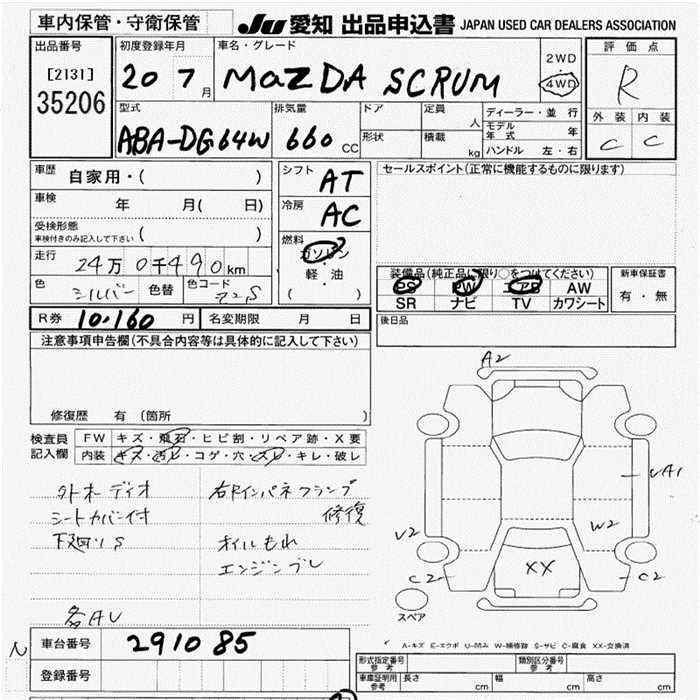 車内保管・守衛保管 JU 愛知 出品申込書 JAPAN USED CAR DEALERS ASSOCIATION
出品番号 初度登録年月 車名・グレード 2WD 評価点
[2131] 20 7月 MAZDA SCRUM 4WD R
35206
型式 排気量 ドア 定員 人 ディーラー・並行 外装 内装
ABA-DG64W 660 CC 形状 積載 kg モデル年式 年 C C
ハンドル 左・右
車歴 自家用・( ) シフト AT セールスポイント(正常に機能するものに限ります)
車検 年 月( 日) 冷房 AC
受検形態
車検付きのみ記入して下さい ( ) 燃料 ガソリン
走行 24万0千490km 軽・油 装備品(純正品に限り○をつけてください) 新車保証書
色 シルバー 色替 色コード ( ) PS PW エアB AW 有・無
SR ナビ TV カワシート
R券 10,160 円 名変期限 月 日 後日品
注意事項申告欄(不具合内容等は具体的に記入して下さい)
A2
修復歴 有 (箇所 )
検査員 FW キズ・飛石・ヒビ割・リペア跡・X要
記入欄 内装 キズ・汚レ・コゲ・穴・スレ・キレ・破レ
外オーディオ 右Fインパネフランプ UA1
シートカバー付 修復 W2
下廻りS オイルもれ V2
エンジンブレ XX
C2 C2
各AU スペア
車台番号 291085 A-キズ E-エクボ U-凹み W-補修跡 S-サビ C-腐食 XX-交換済
登録番号 形式指定番号 参考 類別区分番号 参考
車庫証明用 参考 長さ cm 幅 cm 高さ cm